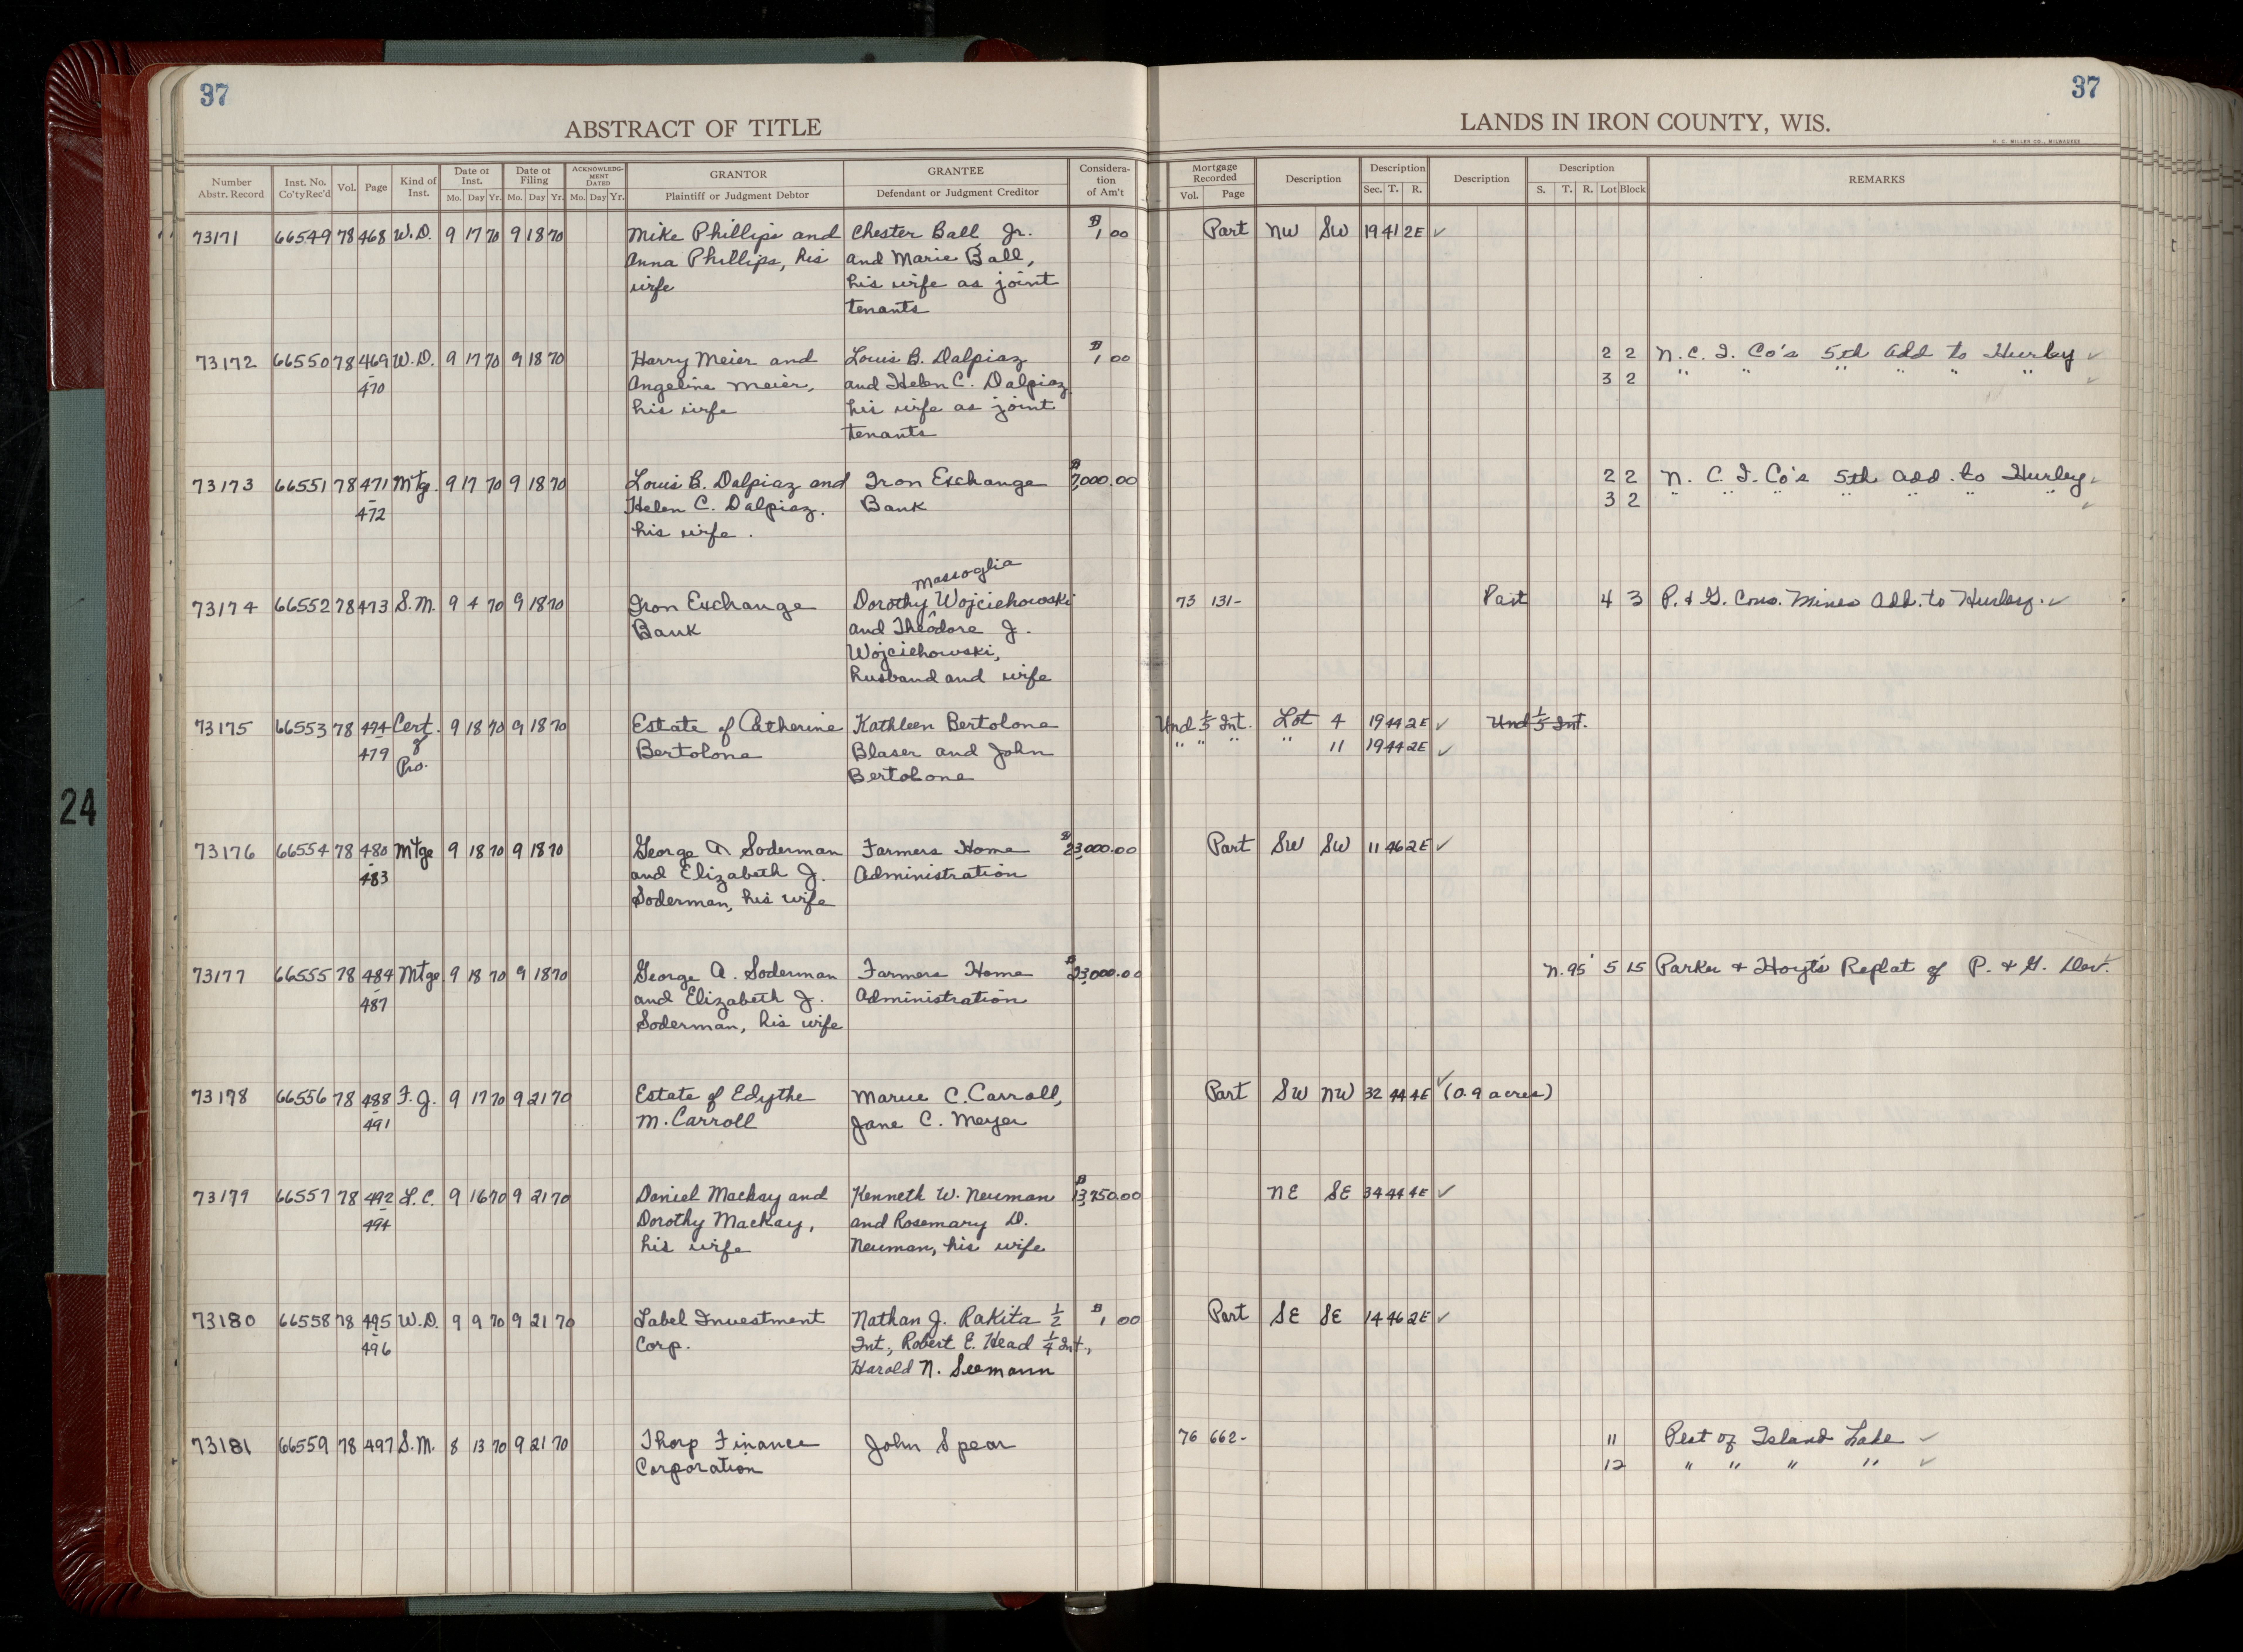 37
37
ABSTRACT OF TITLE
LANDS IN IRON COUNTY, WIS.
H. C. MILLER CO., MILWAUKEE
Number Abstr. Record Inst. No. Co'ty Rec'd Vol. Page Kind of Inst. Date of Inst. Mo. Day Yr. Date of Filing Mo. Day Yr. ACKNOWLEDGMENT DATED Mo. Day Yr. GRANTOR Plaintiff or Judgment Debtor GRANTEE Defendant or Judgment Creditor Consideration of Am't Mortgage Recorded Vol. Page Description Description Sec. T. R. Description Description S. T. R. Lot Block REMARKS
73171 66549 78 468 W.D. 9 17 70 9 18 70 Mike Phillips and Chester Ball Jr. $1 00 Part NW SW 19 41 2E ✓
Anna Phillips, his and Marie Ball,
wife his wife as joint
tenants
73172 66550 78 469 W.D. 9 17 70 9 18 70 Harry Meier and Louis B. Dalpiaz $1 00 2 2 N. C. I. Co's 5th Add to Hurley ✓
- 470 Angeline Meier, and Helen C. Dalpiaz 3 2 " " " " " " ✓
his wife his wife as joint
tenants
73173 66551 78 471 Mtg. 9 17 70 9 18 70 Louis B. Dalpiaz and Iron Exchange $7,000.00 2 2 N. C. I. Co's 5th Add. to Hurley ✓
- 472 Helen C. Dalpiaz. Bank 3 2 " " " " " " ✓
his wife.
Massoglia
73174 66552 78 473 S.M. 9 4 70 9 18 70 Iron Exchange Dorothy Wojciehowski 73 131- Part 4 3 P. & G. Cons. Mines Add. to Hurley. ✓
Bank and Theodore J.
Wojciehowski,
husband and wife
73175 66553 78 474 Cert. 9 18 70 9 18 70 Estate of Catherine Kathleen Bertolone Und 1/5 Int. Lot 4 19 44 2E ✓ Und 1/5 Int.
- 479 of Pro. Bertolone Blaser and John " " " " 11 19 44 2E ✓
Bertolone
73176 66554 78 480 Mtge 9 18 70 9 18 70 George A Soderman Farmers Home $23,000.00 Part SW SW 11 46 2E ✓
- 483 and Elizabeth J. Administration
Soderman, his wife
73177 66555 78 484 Mtge 9 18 70 9 18 70 George A. Soderman Farmers Home $23,000.00 N. 95' 5 15 Parker & Hoyt's Replat of P. & G. Dev. ✓
- 487 and Elizabeth J. Administration
Soderman, his wife
73178 66556 78 488 F.J. 9 17 70 9 21 70 Estate of Edythe C. Carroll, Part SW NW 32 44 4E ✓ (0.9 acres)
- 491 M. Carroll Jane C. Meyer
73179 66557 78 492 L.C. 9 16 70 9 21 70 Daniel Mackay and Kenneth W. Neuman $13,750.00 NE SE 34 44 4E ✓
- 494 Dorothy Mackay, and Rosemary D.
his wife Neuman, his wife
73180 66558 78 495 W.D. 9 9 70 9 21 70 Label Investment Nathan J. Rakita 1/2 $1 00 Part SE SE 14 46 2E ✓
- 496 Corp. Int., Robert E. Head 1/4 Int.,
Harold N. Seemann
73181 66559 78 497 S.M. 8 13 70 9 21 70 Thorp Finance John Spear 76 662- 11 Pest of Island Lake ✓
Corporation 12 " " " " ✓
24